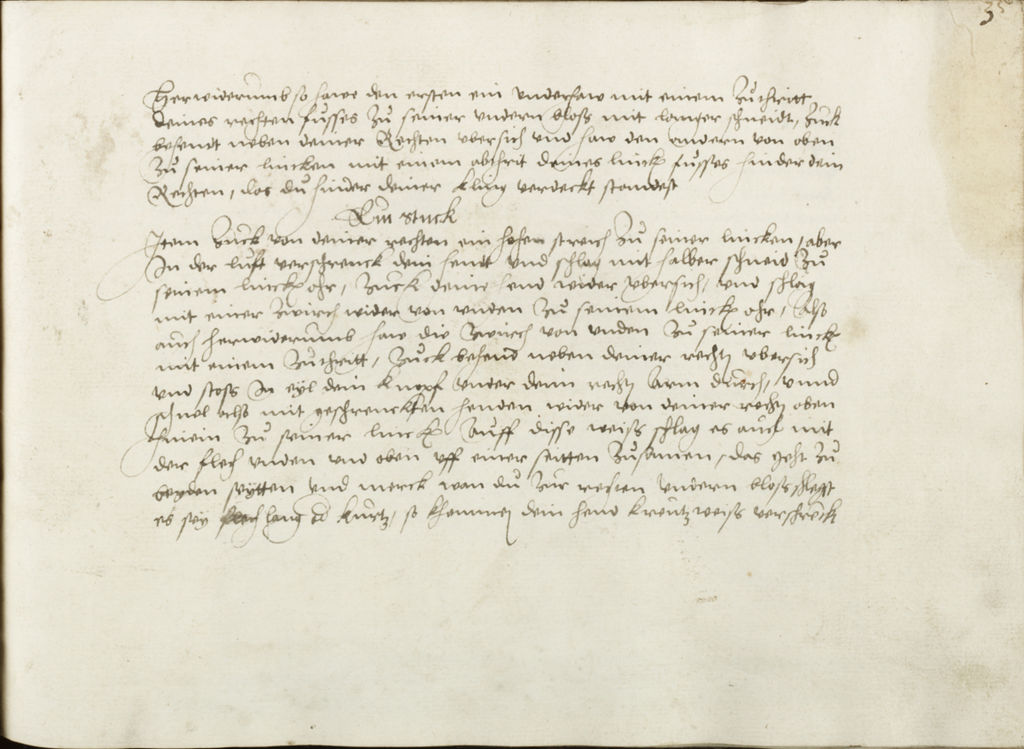 35
Herwiderumb so haw den ersten ein underhaw mit einem Zuthritt
deines rechten fusses Zu seiner undern bloß mit langer schneidt, Zuck
behendt neben deiner Rechten ubersich und haw den andern von oben
Zu seiner lincken mit einem abthrit deines linck fusses hinder dem
Rechten, das du hinder deiner kling verdeckt standest
Ein stuck
Item Zuck von deiner rechten ein hohen streich Zu seiner lincken, aber
In der lufft verschrenck dein hendt und schlag mit halber schneid Zu
seinem linck ohr, Zuck deine hend wider ubersich, und schlag
mit einer Zwirch wider von unden Zu seinem linck ohr, Also
auch herwiderumb haw die Zwirch von unden Zu seiner linck
mit einem Zuthritt, Zuck behend neben deiner recht ubersich
und stoss In eyl dein knopf under dein recht Arm durch, unnd
schnel also mit geschrenckten henden wider von deiner recht oben
hinein Zu seiner linck Auff disse weiß schlag es auch mit
der flech unden und oben uff einer seitten Zusamen, das geht Zu
beyden seytten und merck wan du Zur rechten undern bloss schlegst
es sey flech lang od kurtz, so khommen dein hend kreutzweiß verschrenckt